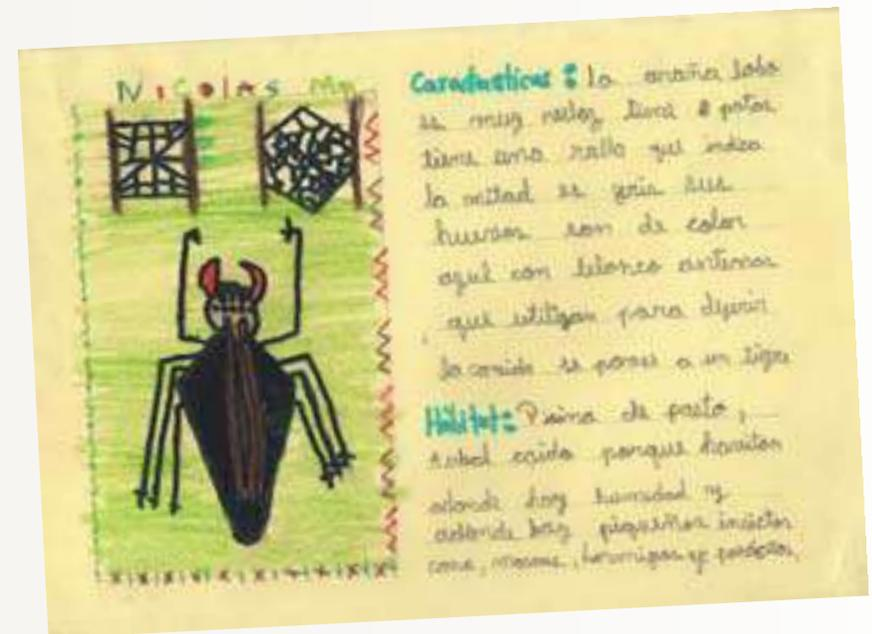 NICOLAS
Caracteristicas: la araña lobo
es muy veloz tiene 8 patas
tiene una rallo que indica
la mitad es gris sus
huevos son de color
azul con blanco antenas
que utilizan para dijerir
la comida se parese a un tigre
Hábitat: de pasto,
Arbol caido porque havitan
adonde hay humedad y
adonde hay pequeños insectos
como, moscas, hormigas y